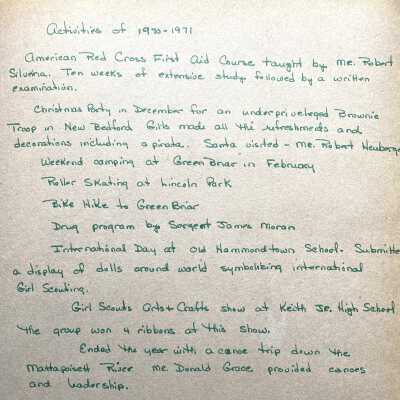 Activities of 1970-1971
American Red Cross First Aid Course taught by Mr. Robert
Silveria. Ten weeks of extensive study followed by a written
examination.
Christmas Party in December for an underpriveleged Brownie
Troop in New Bedford Girls made all the refreshments and
decorations including a pinata. Santa visited - Mr. Robert Neuberge
Weekend camping at Green Briar in February
Roller Skating at Lincoln Park
Bike Hike to Green Briar
Drug program by Sargent James Moran
International Day at Old Hammondtown School. Submitte
a display of dolls around world symbolizing international
Girl Scouting.
Girl Scouts Arts + Crafts show at Keith Jr. High School
The group won 4 ribbons at this show.
Ended the year with a canoe trip down the
Mattapoisett River Mr. Donald Grace provided canoes
and leadership.